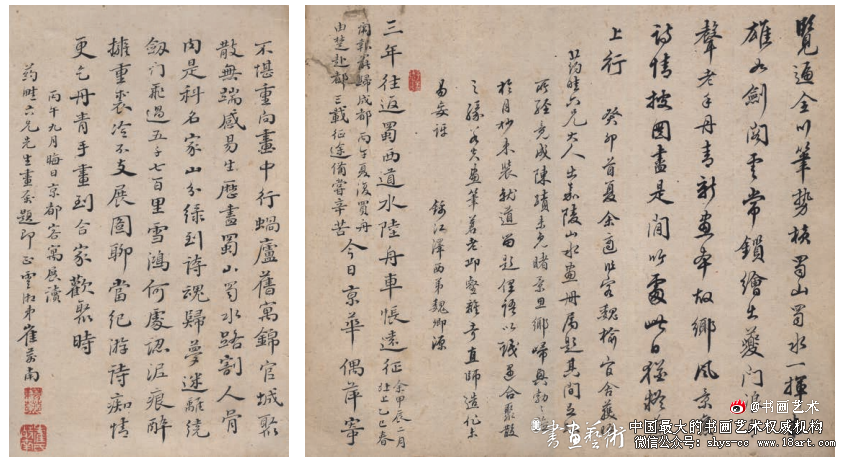 覽遍全川筆勢橫蜀山蜀水一揮
雄如劍閣雲常鎖繪出夔門浪
聲老手丹青新畫本故鄉風景
詩情披圖盡是間吟處此日猶
上行 癸卯首夏余適旅客魏榆官舍獲
葯畦六兄大人出嘉陵山水畫冊屬題其間
所經竟成陳蹟未免睹景思鄉歸興勃
於月杪束裝就道留題俚語以誌遇合聚散
之緣若夫畫筆蒼老邱壑離奇直師造化不
易妄評 錦江澤西弟魏卿源
三年往返蜀西道水陸舟車悵遠征 余甲辰二月
乙巳春
歸成都丙午夏復買舟
由楚赴都三載征途備嘗辛苦 今日京華偶萍寄
不堪重向畫中行蝸廬舊寓錦官城聚
散無端感易生歷盡蜀山蜀水路割人骨
肉是科名家山分綠到詩魂歸夢迷離繞
劍門飛過五千七百里雪鴻何處認泥痕醉
擁重裘冷不支展圖聊當紀游詩痴情
更乞丹青手畫到合家歡聚時
丙午九月晦日京都客寓展讀
葯畦六兄先生畫冊題即正 雲湘弟崔萬南
@书画艺术
書畫藝術
中国最大的书画艺术权威机构
微信公众号：shys-cc www.18art.com